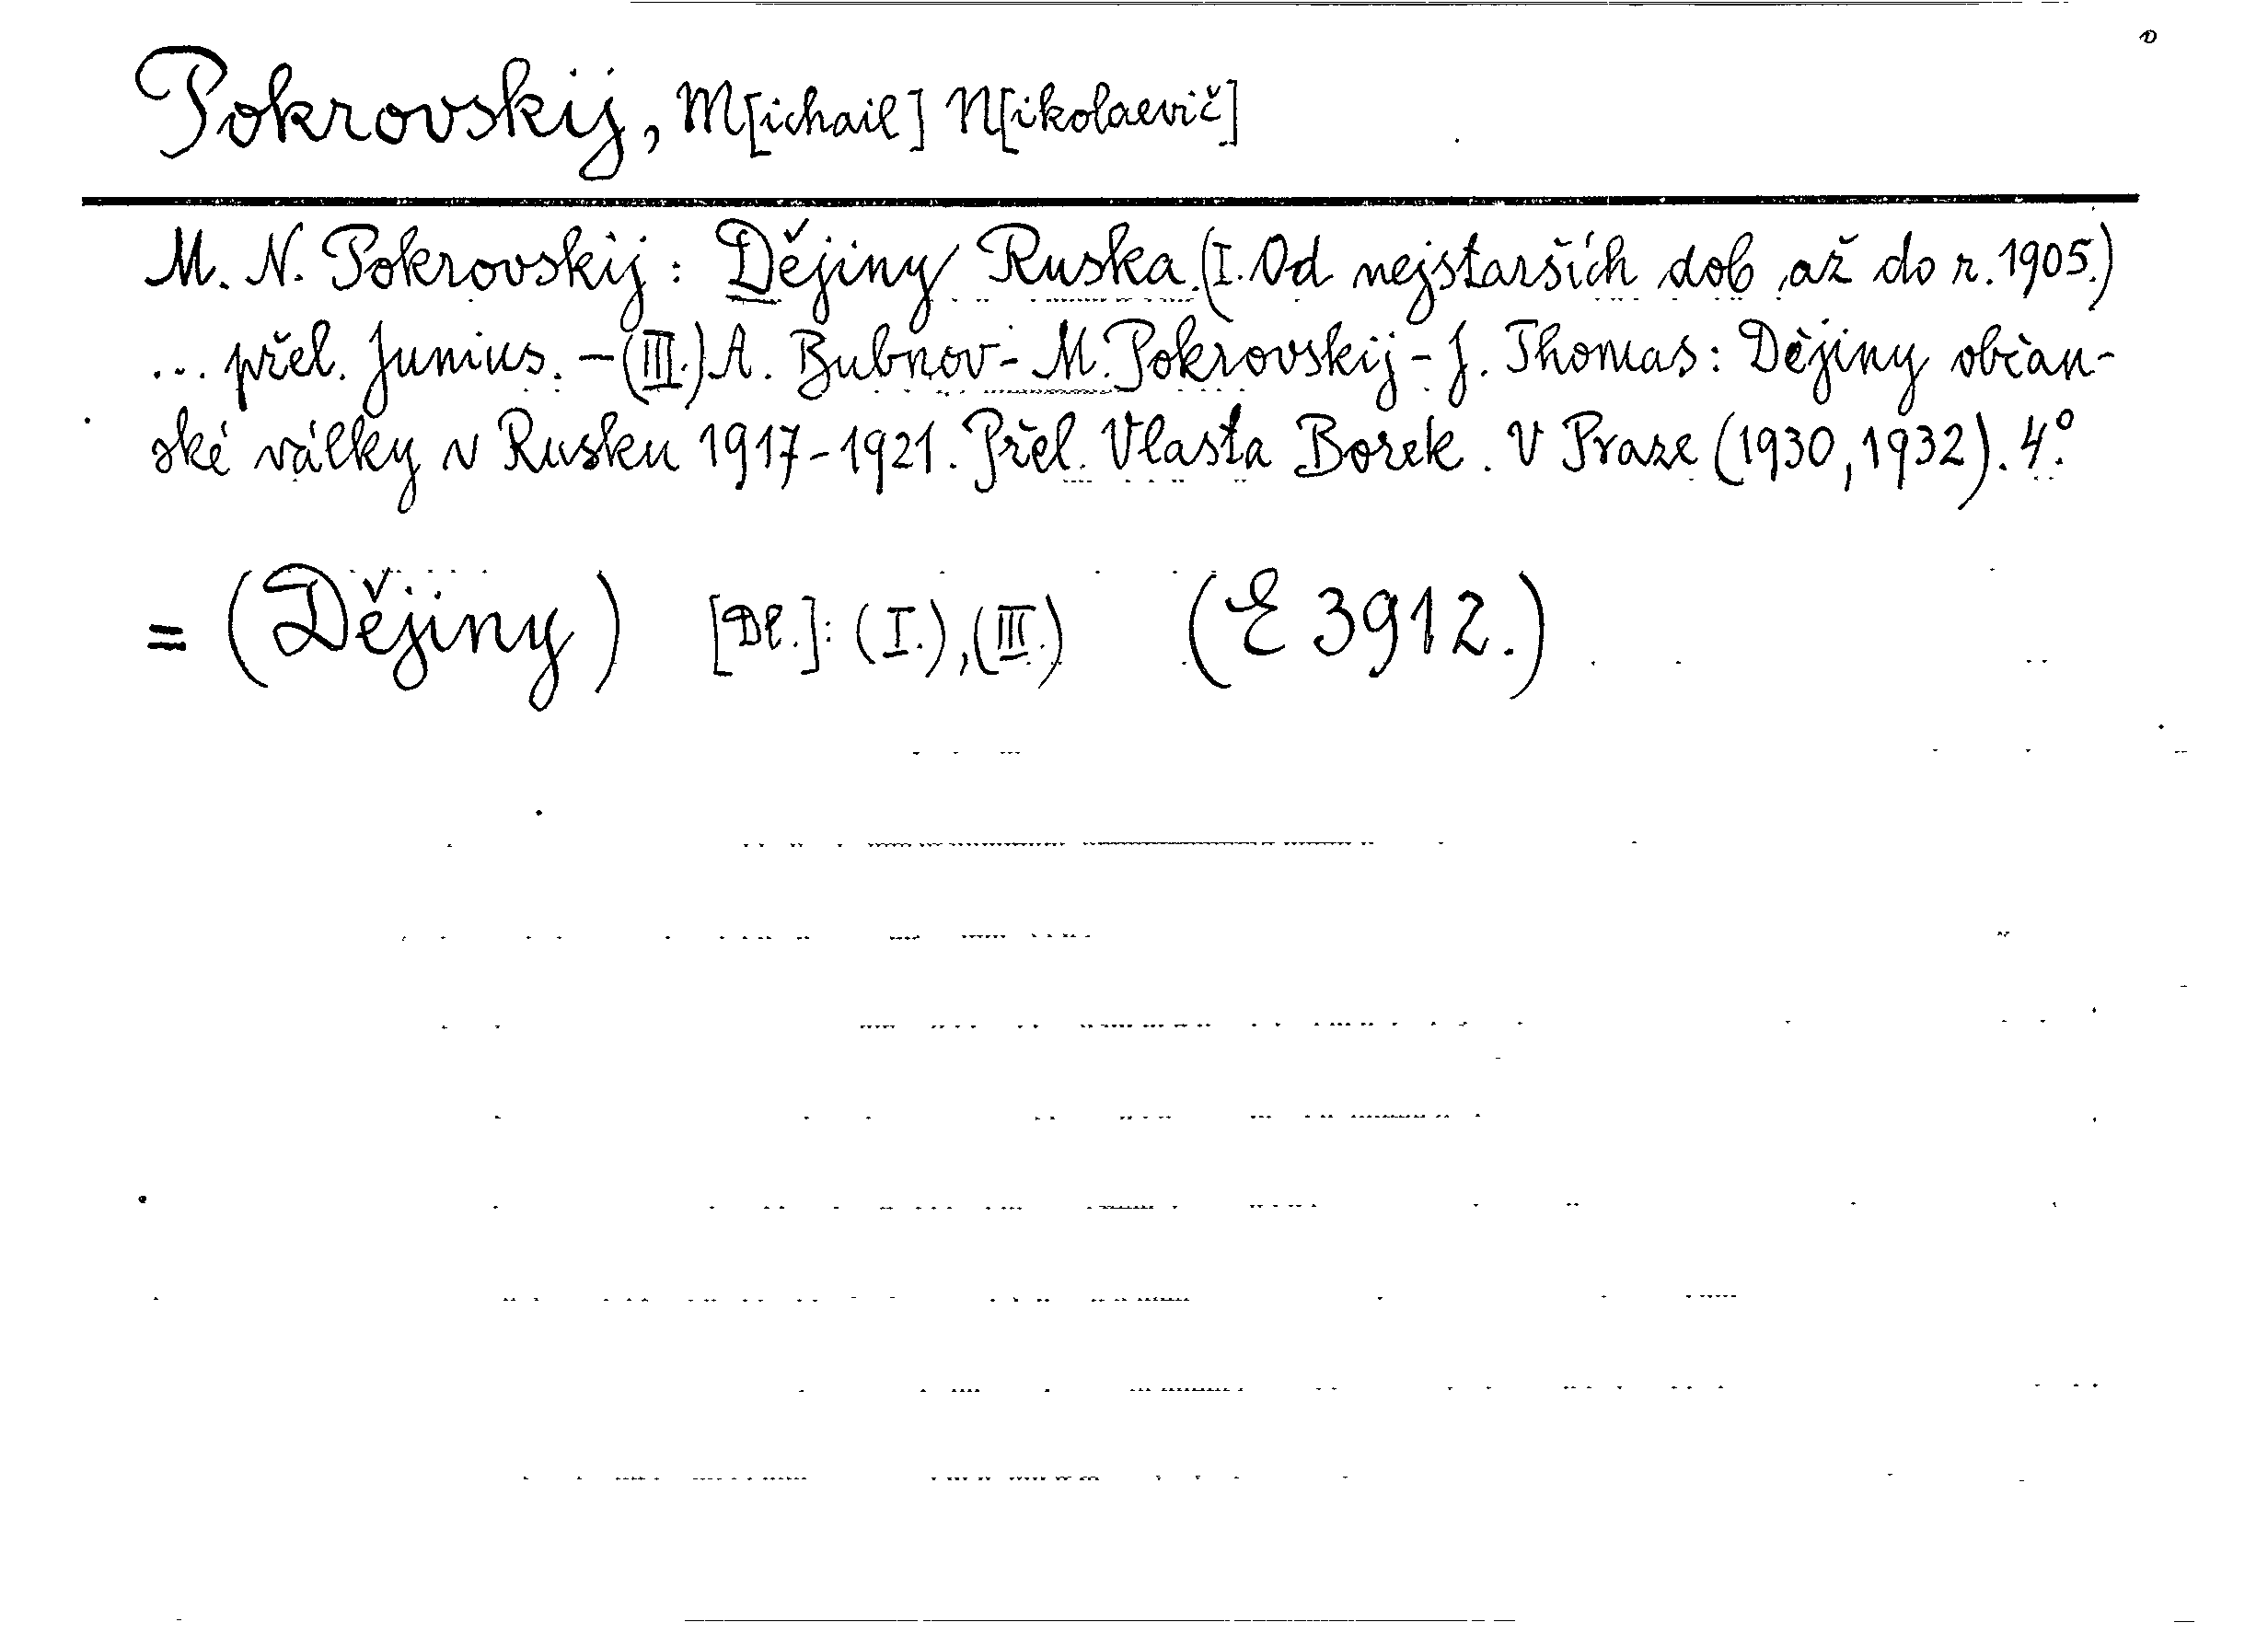 Pokrovskij, M[ichail] N[ikolaevič]
M. N. Pokrovskij: Dějiny Ruska. (I. Od nejstarších dob až do r. 1905.)
... přel. Junius. – (III.) A. Bubnov - M. Pokrovskij - J. Thomas: Dějiny občan-
ské války v Rusku 1917-1921. Přel. Vlasta Borek. V Praze (1930, 1932). 4°.
= (Dějiny) [Dl.]: (I.), (III.) (E 3912.)